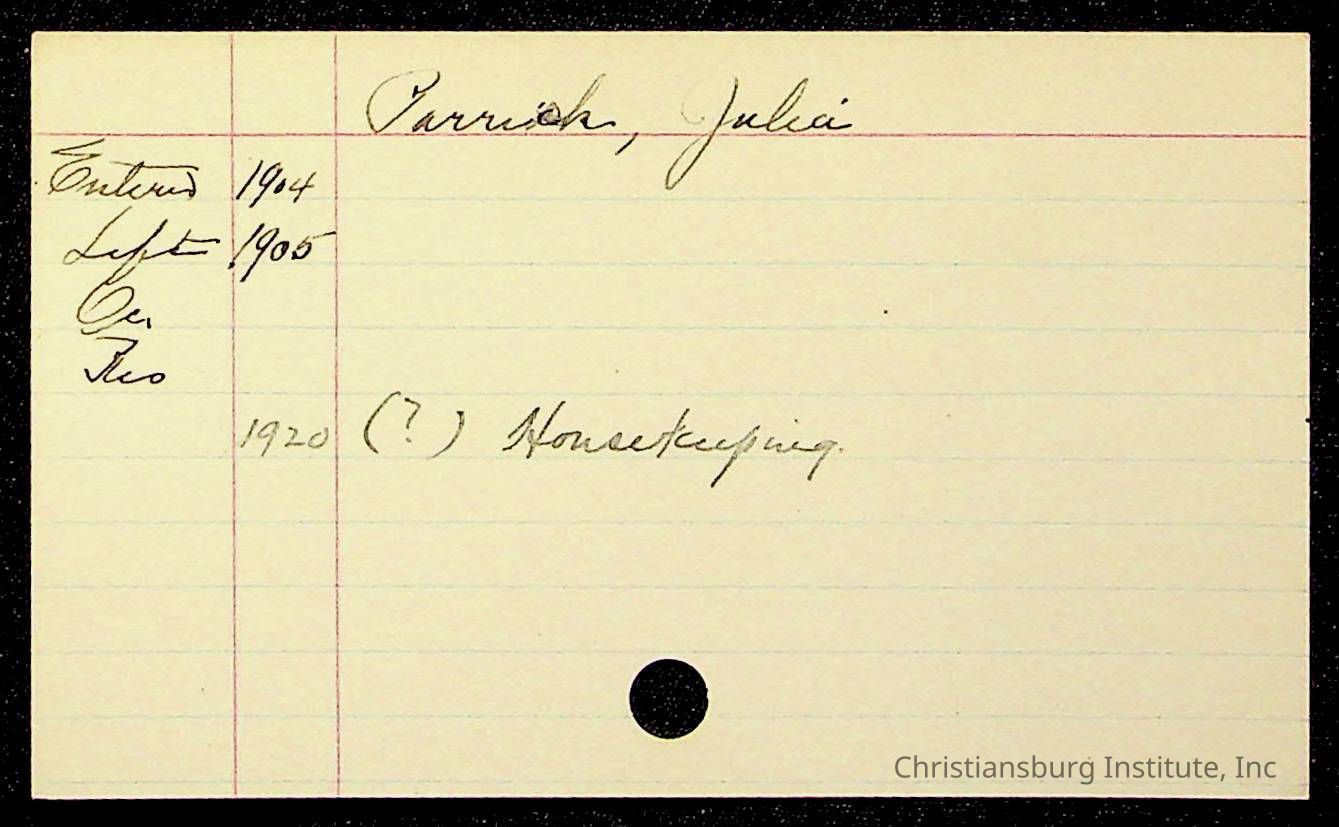 Parrick, Julia
Entered 1904
Left 1905
Oc.
Res
1920 (?) Housekeeping.
Christiansburg Institute, Inc